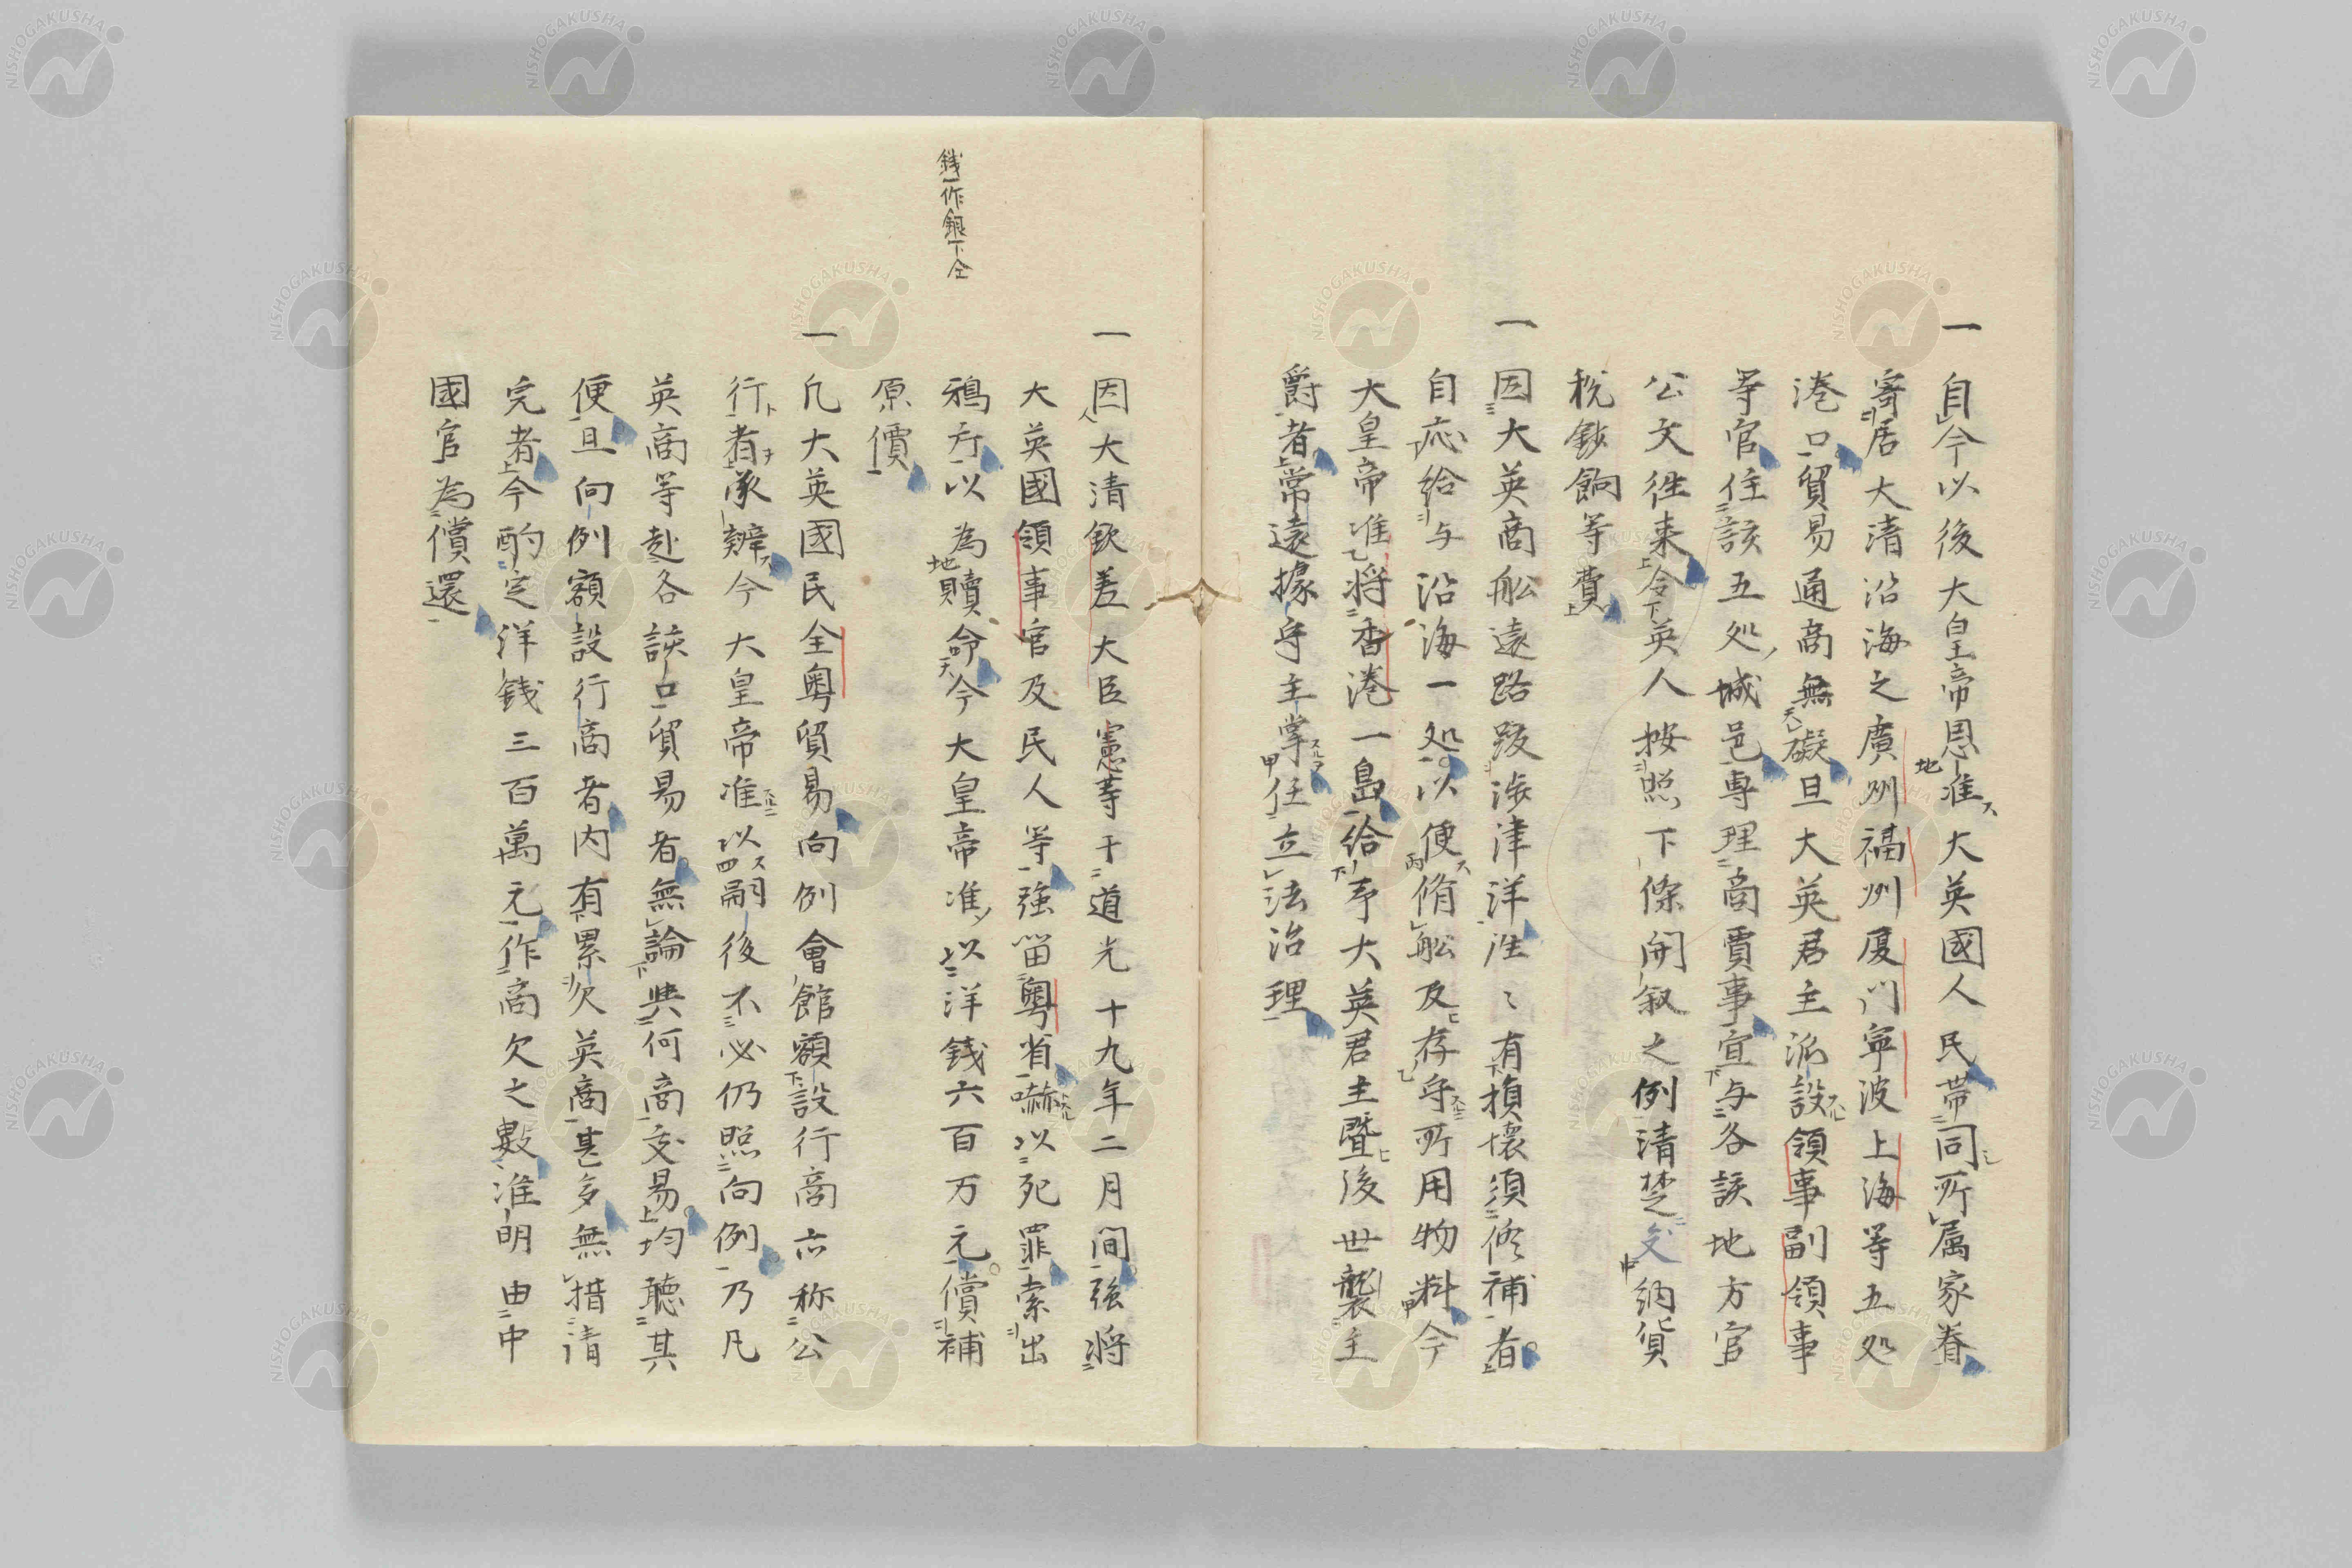 一 自今以後大皇帝恩准大英國人民帯同所属家眷
寄居大清沿海之廣州福州厦门寧波上海等五処
港口貿易通商無礙且大英君主派設領事副領事
等官住該五処城邑専理商賈事宜与各該地方官
公文徃来令英人按照下條開叙之例清楚交納貨
税鈔餉等費
一 因大英商舩遠路跋渉津洋徃〻有損壊須修補者
自応給与沿海一処以便脩舩及存守所用物料今
大皇帝准将香港一島給予大英君主曁後世襲主
爵者常遠據守主掌任立法治理
一 因大清欽差大臣憲等于道光十九年二月間強将
大英國領事官及民人等強畱粤省嚇以死罪索出
鴉片以為贖命今大皇帝准以洋銭六百万元償補
原價
銭一作銀下仝
一 凡大英國民全粤貿易向例會館額設行商亦称公
行者承辨今大皇帝准以嗣後不必仍照向例乃凡
英商等赴各該口貿易者無論與何商交易均聴其
便且向例額設行商者内有累欠英商甚多無措清
完者今酌定洋銭三百萬元作商欠之數准明由中
國官為償還
NISHOGAKUSHA